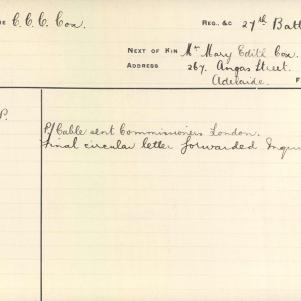 ME C. C. C. Cox. REG. &C 27th Batt
NEXT OF KIN Mrs Mary Edith Cox.
ADDRESS 267. Angas Street.
Adelaide. F
P. P/Cable sent Commissioners London.
Final circular letter forwarded Inqui